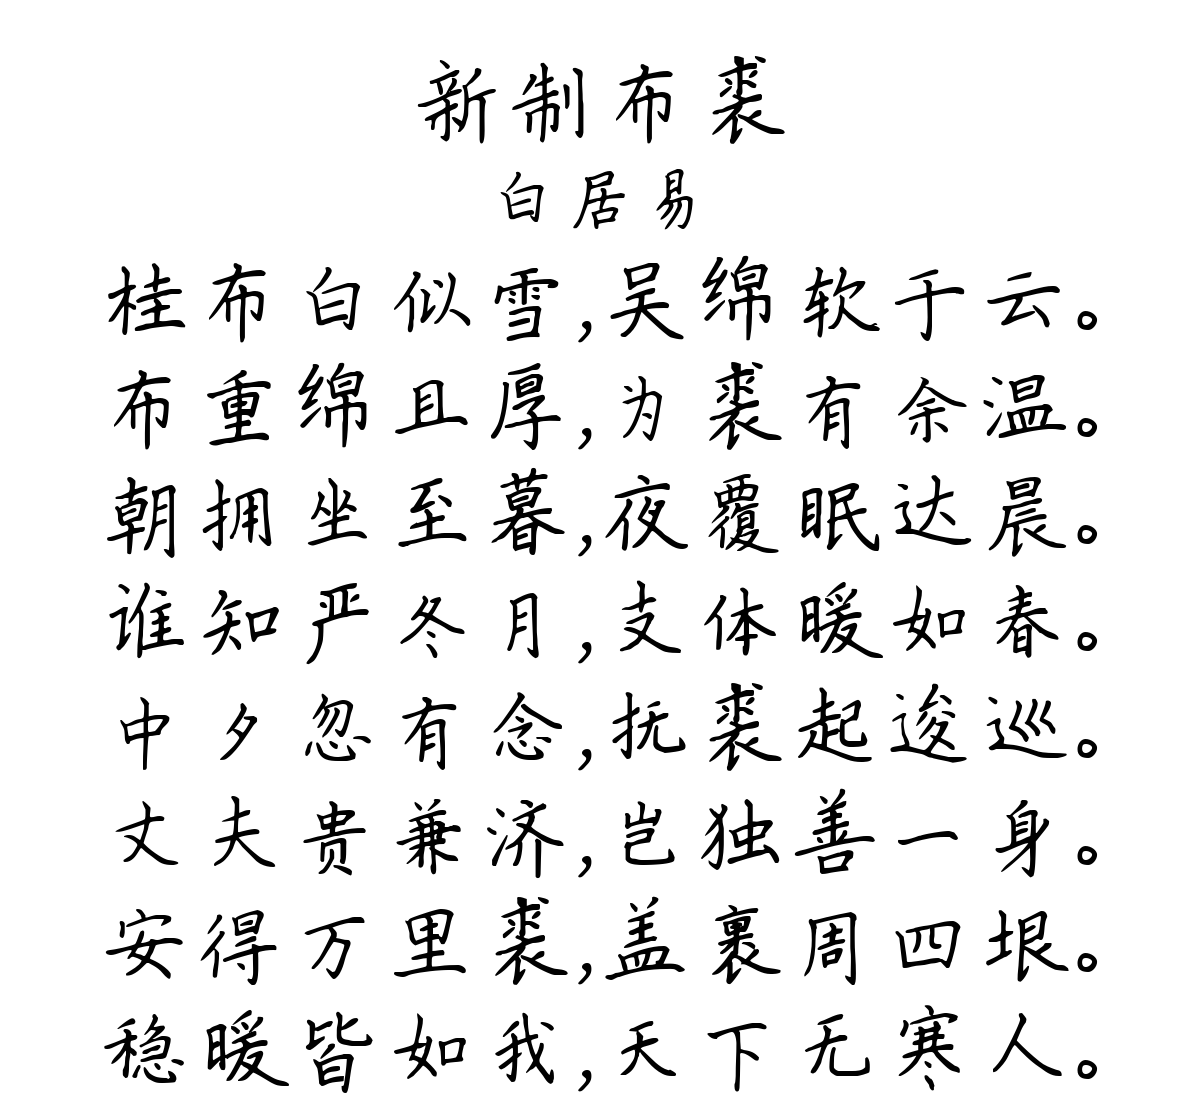 新制布裘
白居易
桂布白似雪,吴绵软于云。
布重绵且厚,为裘有余温。
朝拥坐至暮,夜覆眠达晨。
谁知严冬月,支体暖如春。
中夕忽有念,抚裘起逡巡。
丈夫贵兼济,岂独善一身。
安得万里裘,盖裹周四垠。
稳暖皆如我,天下无寒人。